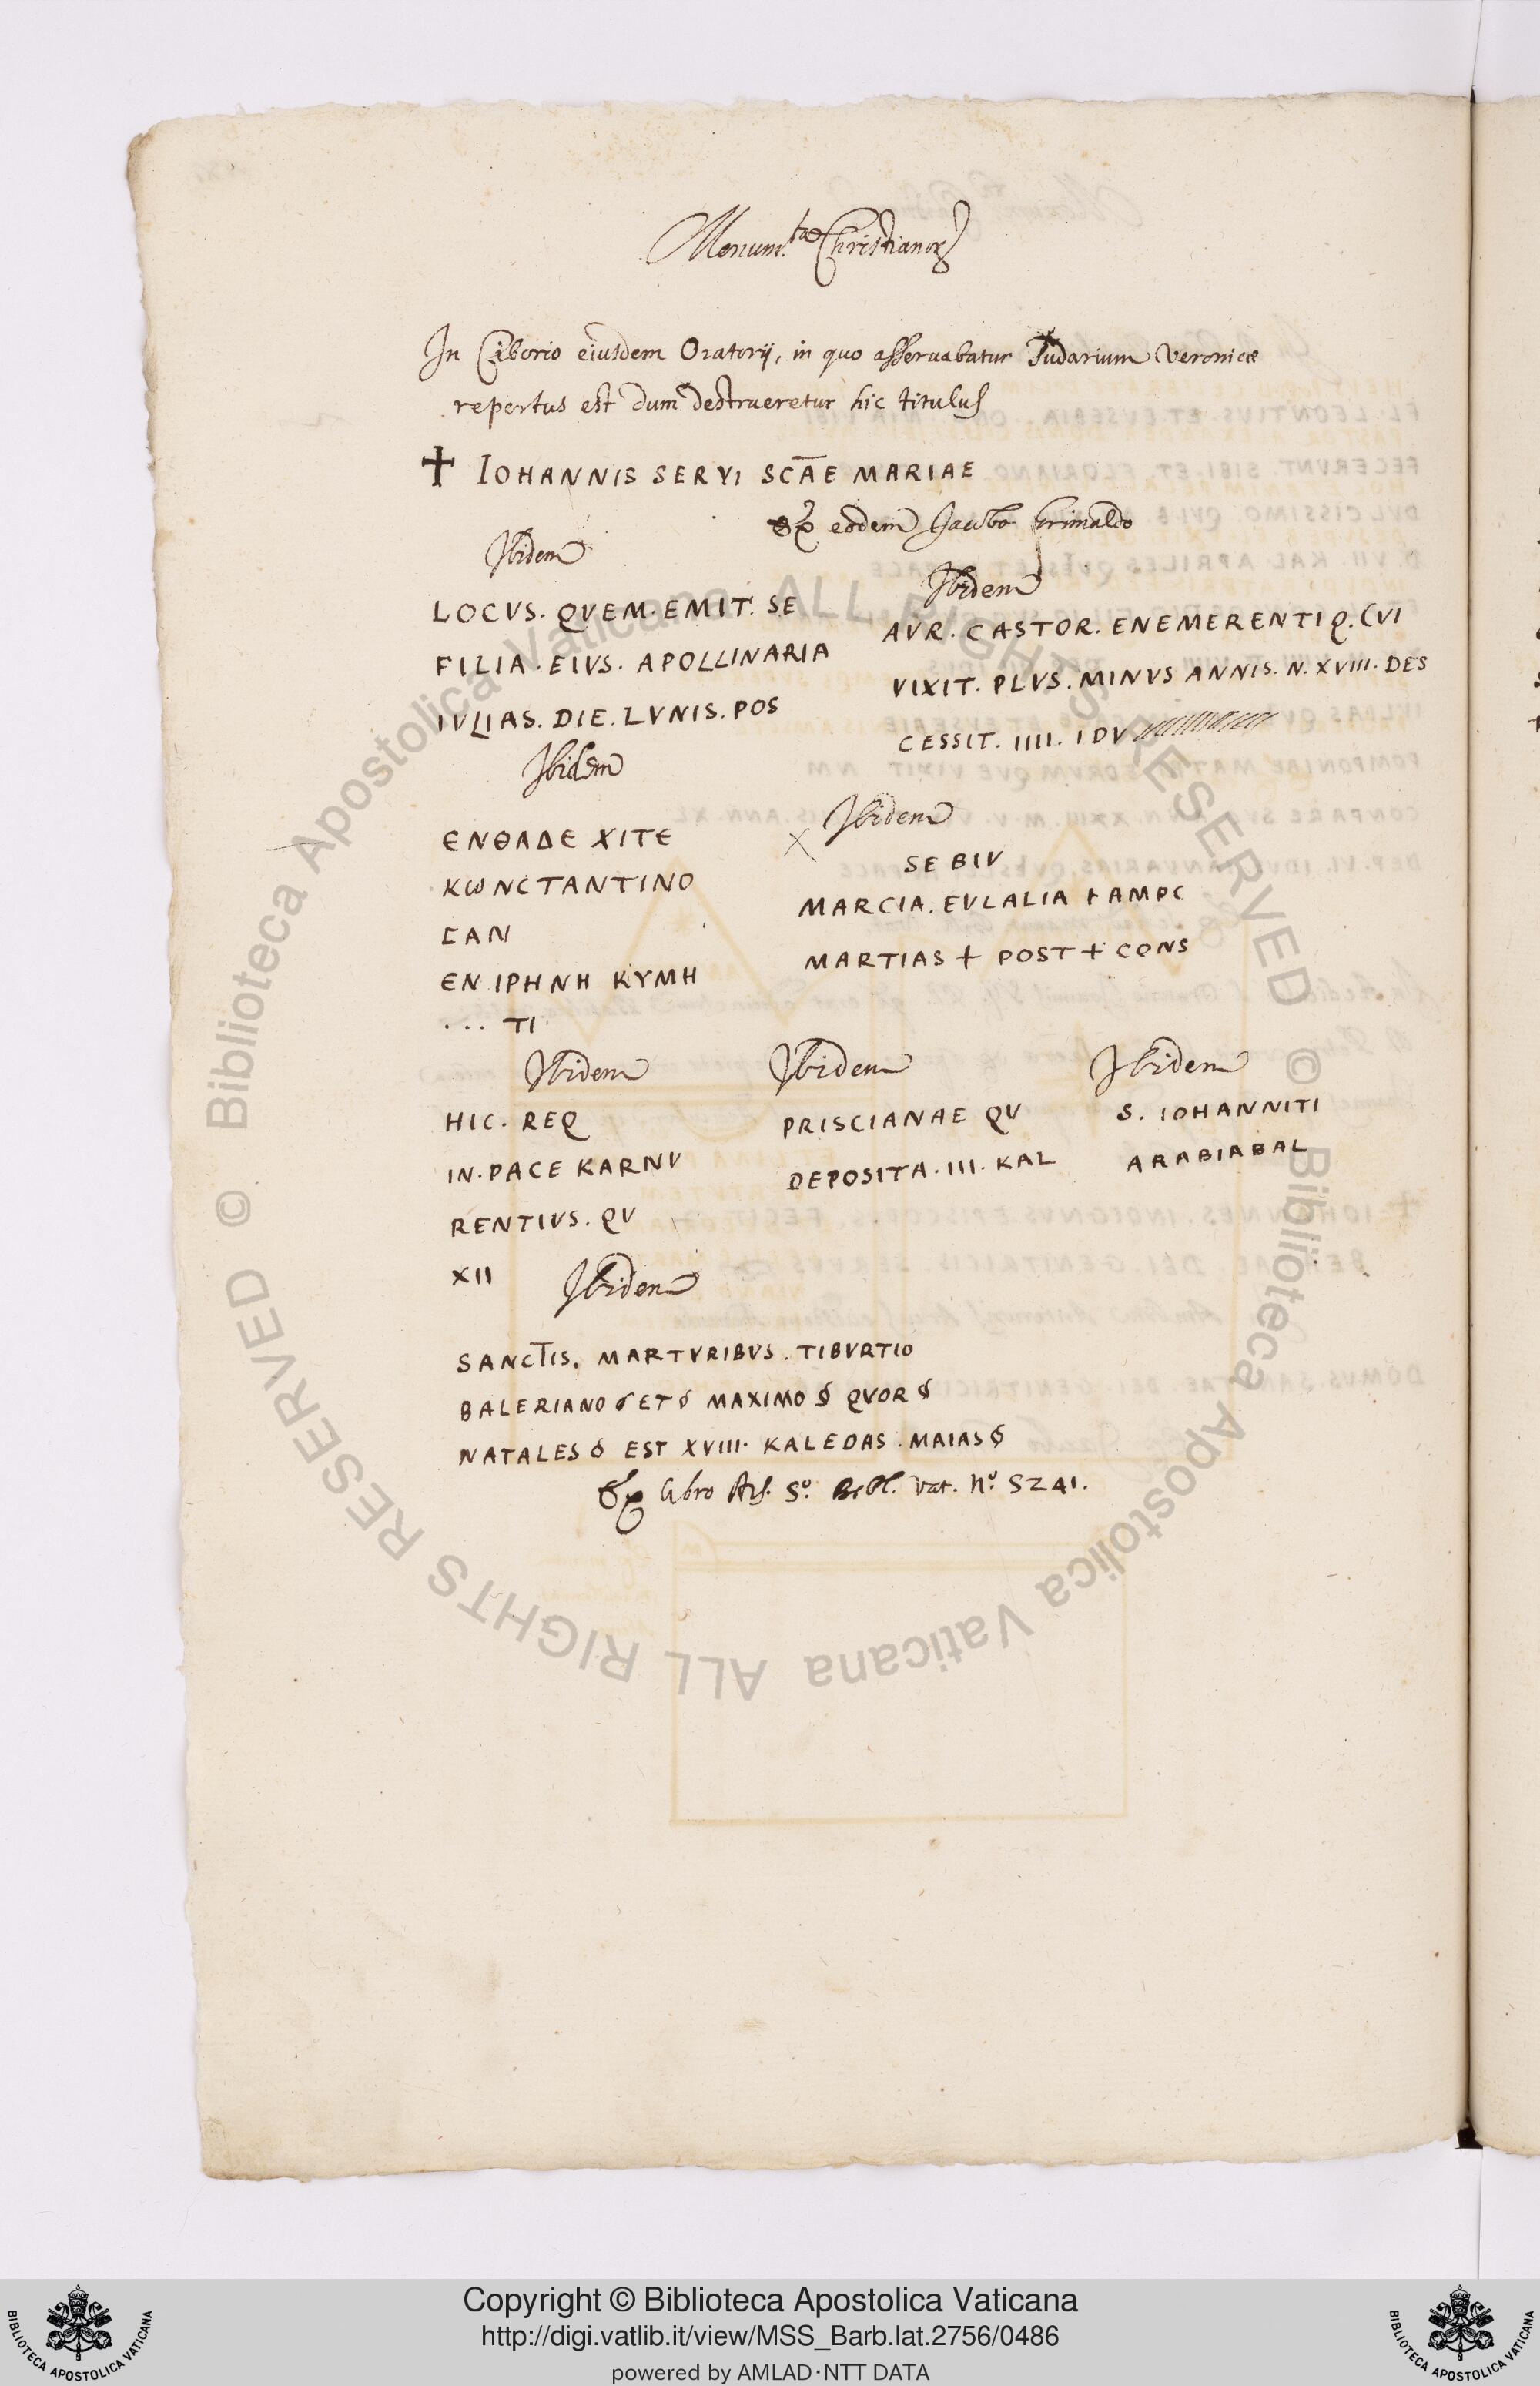 Monum.ta Christianor
In Ciborio eiusdem Oratorij, in quo asseruabatur Sudarium Veronicæ
repertus est dum destrueretur hic titulus
✝ IOHANNIS SERVI SCĀE MARIAE
Ex eodem Jacobo Grimaldo
Ibidem
LOCVS. QVEM. EMIT. SE
FILIA. EIVS. APOLLINARIA
IVLIAS. DIE. LVNIS. POS
Ibidem
AVR. CASTOR. ENEMERENTI Q. CVI
VIXIT. PLVS. MINVS ANNIS. N. XVIII. DES
CESSIT. IIII. IDV
Ibidem
ЄΝΘΑΔЄ ΧΙΤЄ
ΚωΝCΤΑΝΤΙΝΟ
CΑΝ
ЄΝ ΙΡΗΝΗ ΚΥΜΗ
... ΤΙ
Ibidem
SE BIV
MARCIA. EVLALIA + AMPC
MARTIAS + POST + CONS
Ibidem
HIC. REQ
IN. PACE KARNV
RENTIVS. QV
XII
Ibidem
PRISCIANAE QV
DEPOSITA. III. KAL
Ibidem
S. IOHANNITI
ARABIABAL
Ibidem
SANCTIS. MARTVRIBVS. TIBVRTIO
BALERIANO ET MAXIMO QVOR
NATALES EST XVIII. KALEDAS. MAIAS
Ex libro Ms. S.º Bibl. Vat. Nº. 5241.
© Biblioteca Apostolica Vaticana ALL RIGHTS RESERVED
© Biblioteca Apostolica Vaticana ALL RIGHTS RESERVED
Copyright © Biblioteca Apostolica Vaticana
http://digi.vatlib.it/view/MSS_Barb.lat.2756/0486
powered by AMLAD·NTT DATA
BIBLIOTECA APOSTOLICA VATICANA
BIBLIOTECA APOSTOLICA VATICANA